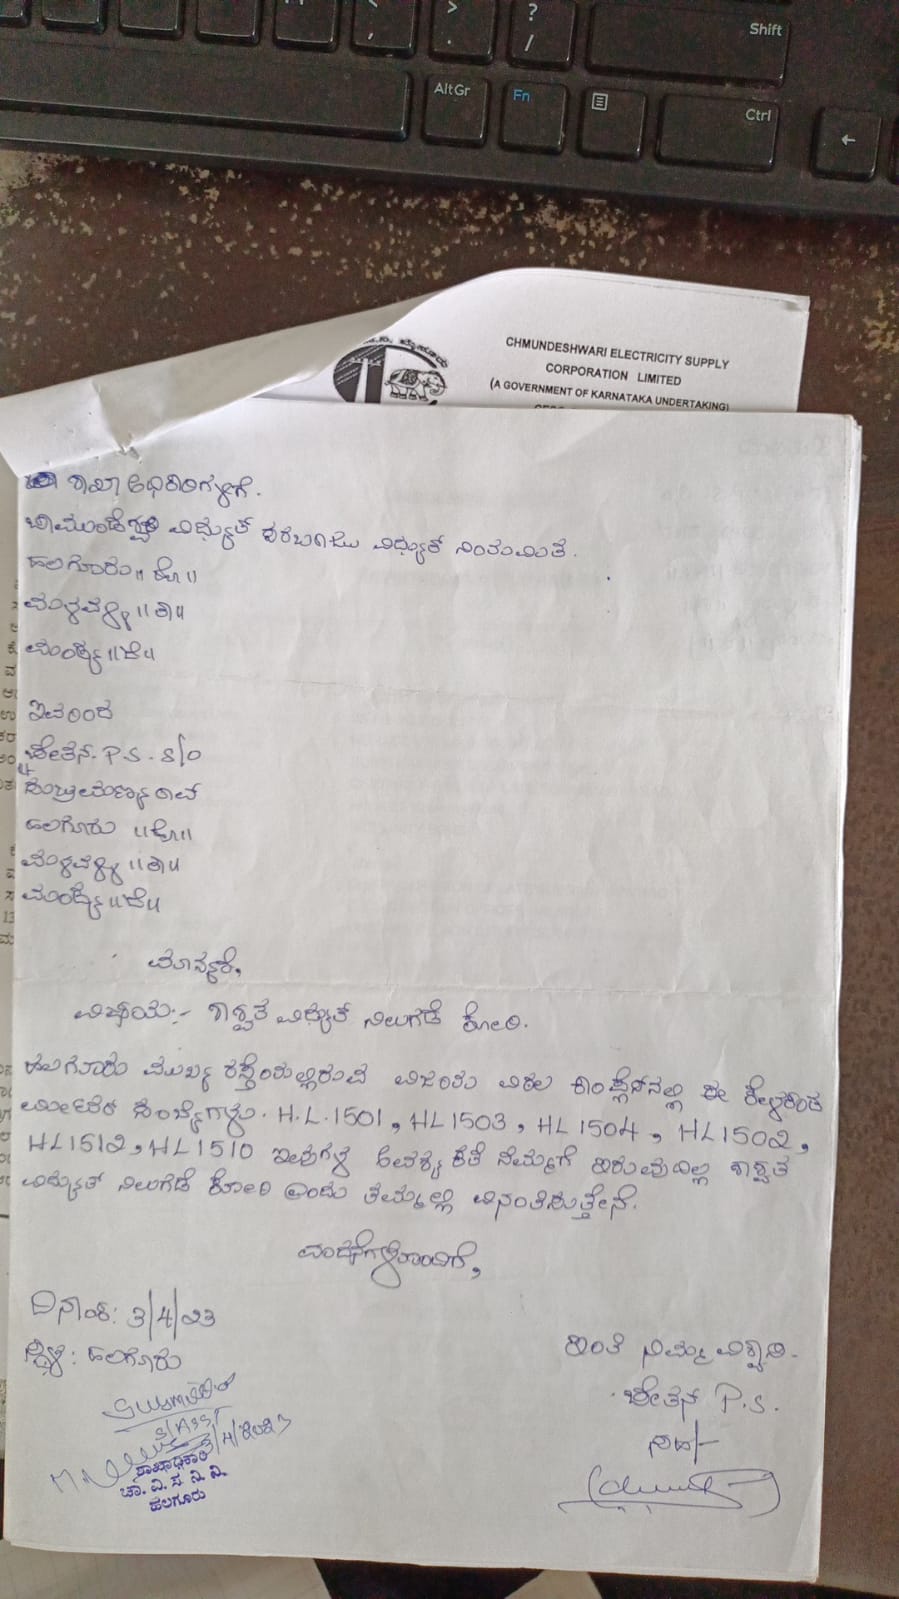 <
,
>
.
?
/
Shift
AltGr
Fn
Ctrl
←
CHMUNDESHWARI ELECTRICITY SUPPLY
CORPORATION LIMITED
(A GOVERNMENT OF KARNATAKA UNDERTAKING)
ಶಾಖಾಧಿಕಾರಿಗಳಿಗೆ.
ಚಾಮುಂಡೇಶ್ವರಿ ವಿಧ್ಯುತ್ ಸರಬರಾಜು ವಿಧ್ಯುತ್ ನಿಂತಮಿತೆ.
ಹಲಗೂರು॥ಹೋ॥
ಮಳವಳ್ಳಿ॥ತಾ॥
ಮಂಡ್ಯ॥ಜಿ॥
ಇವರಿಂದ
ಚೇತನ. P.S. S/O
ಸುಬ್ರಮಣ್ಯ ರಾವ್
ಹಲಗೂರು ॥ಹೋ॥
ಮಳವಳ್ಳಿ ॥ತಾ॥
ಮಂಡ್ಯ॥ಜಿ॥
ಮಾನ್ಯರೆ,
ವಿಷಯ:- ಶಾಶ್ವತ ವಿಧ್ಯುತ್ ನಿಲುಗಡೆ ಕೋರಿ.
ಹಲಗೂರು ಮುಖ್ಯ ರಸ್ತೆಯಲ್ಲಿರುವ ವಿಜಯ ವಿಠಲ ಕಾಂಪ್ಲೆಕ್ಸ್‌ನಲ್ಲಿ ಈ ಕೆಳಕಂಡ
ಮೀಟರ್ ಸಂಖ್ಯೆಗಳು. H.L.1501, HL1503, HL1504, HL1502,
HL1512, HL1510 ಇವುಗಳ ಅವಶ್ಯಕತೆ ನಮ್ಮಗೆ ಇರುವುದಿಲ್ಲ ಶಾಶ್ವತ
ವಿಧ್ಯುತ್ ನಿಲುಗಡೆ ಕೋರಿ ಎಂದು ತಮ್ಮಲ್ಲಿ ವಿನಂತಿಸುತ್ತೇನೆ.
ವಂದನೆಗಳೊಂದಿಗೆ,
ದಿನಾಂಕ: 3/4/23
ಸ್ಥಳ: ಹಲಗೂರು
ಇಂತಿ ನಿಮ್ಮ ವಿಶ್ವಾಸಿ.
ಚೇತನ P.S.
ಸಹಿ/-
ಶಾಖಾಧಿಕಾರಿ
ಚಾ. ವಿ. ಸ. ನಿ. ನಿ.
ಹಲಗೂರು